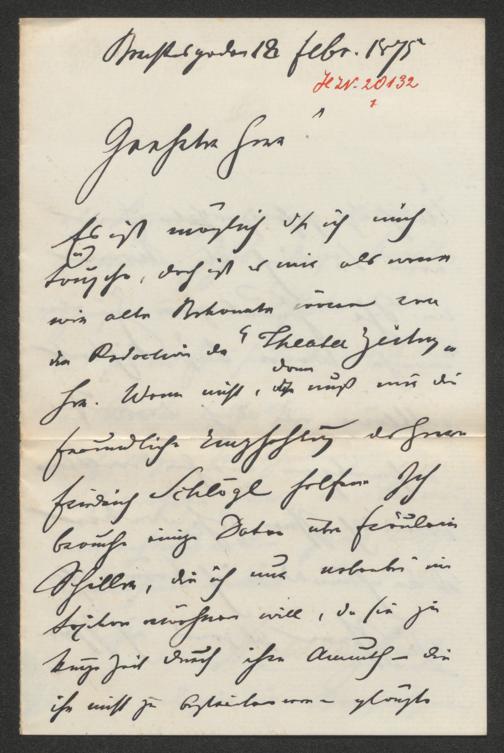 18 Febr. 1875
H.I.N. 20132
1
Geehrter Herr!
Es ist möglich dß ich mich
täusche, doch ist es mir als wenn
wir alte Bekannte wären von
der Redaction der "Theater Zeitung"
her. Wenn nicht, dann muß mir die
freundliche Empfehlung des Herrn
Friedrich Schlögl helfen. Ich
brauche einige Daten über Fräulein
Schiller, die ich nur nebenbei im
will, da sie zu
Zeit durch ihre Anmuth – die
ihr nicht zu – glaubte